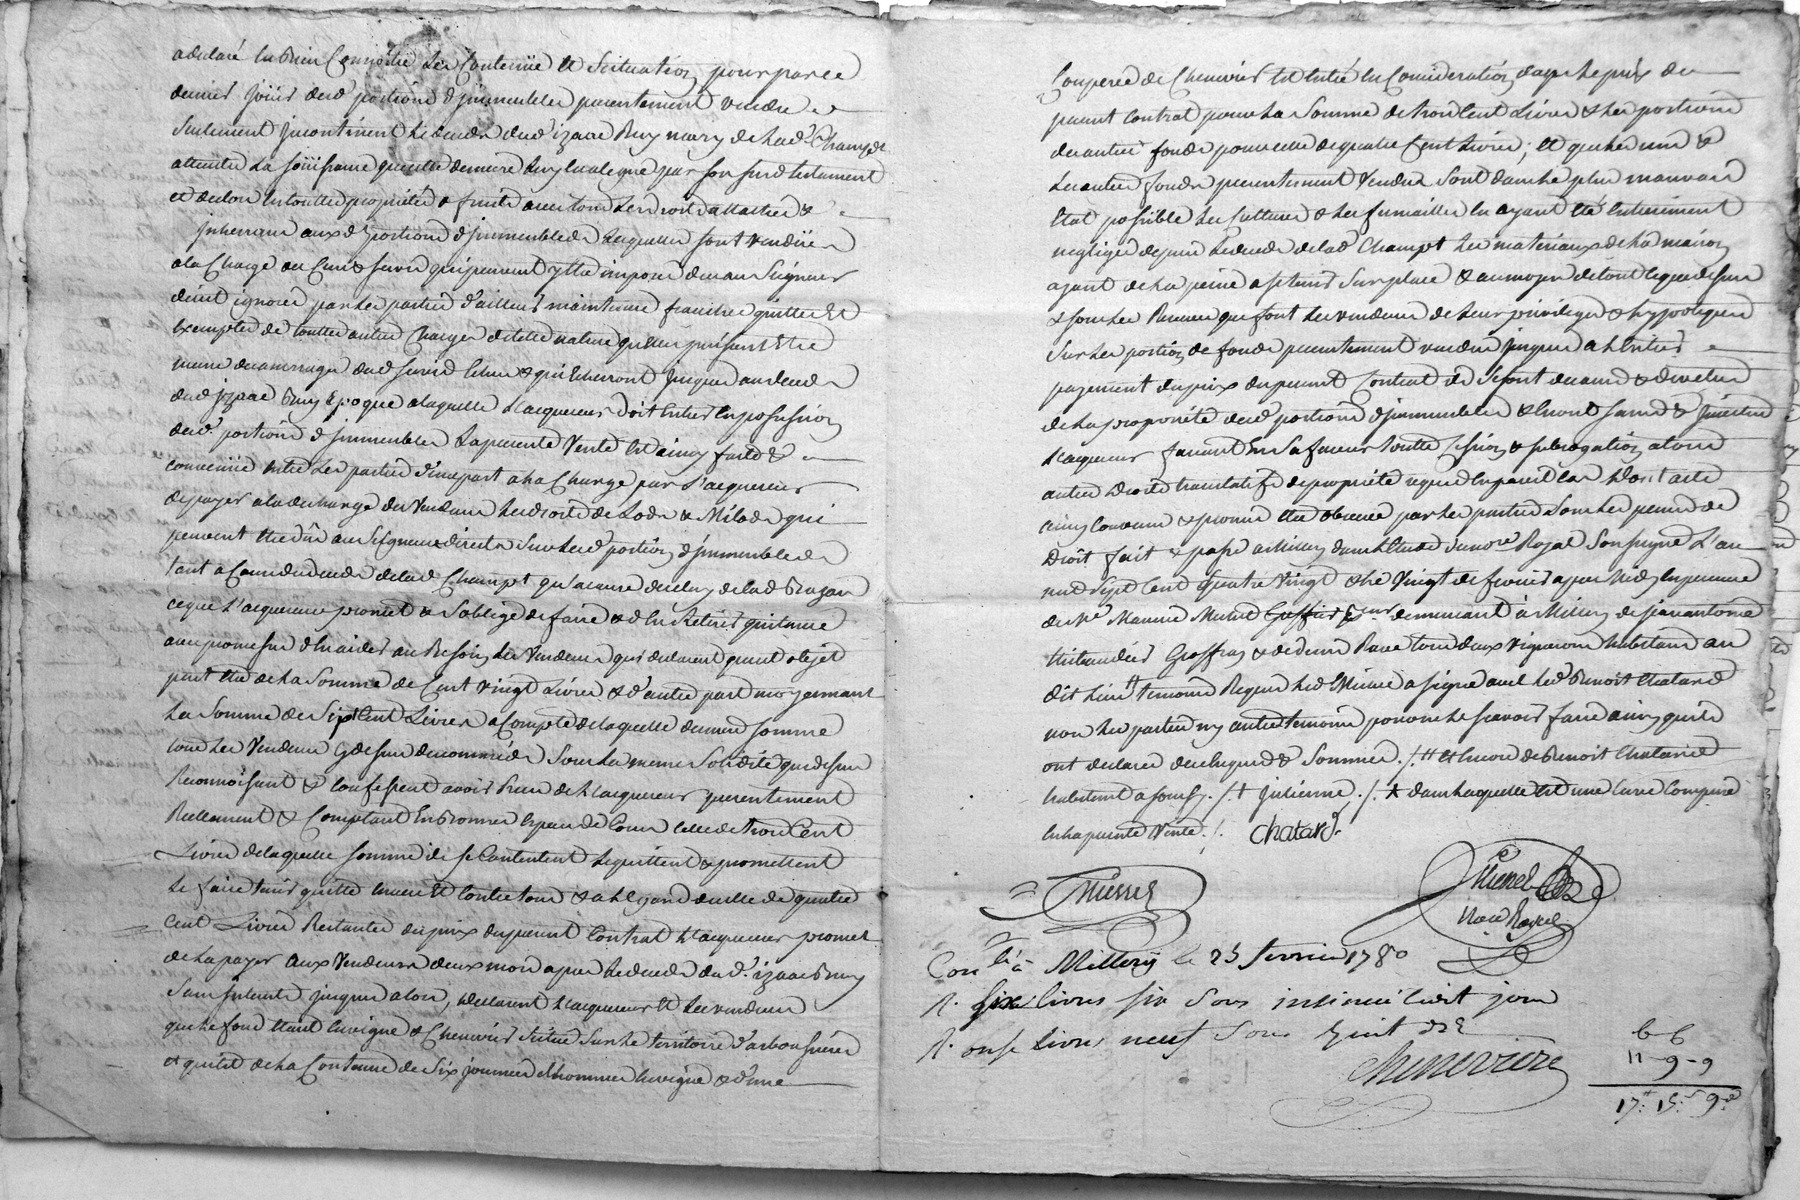 a declaré en bien Connoitre les Contenüe et Scituation pour par ce
dernier joüir desd portions d'jmmeubles presentement vendues
Seulement jncontinent le decedz dud izaac Bruy mary de lad Champet
attendu La joüissance qu'elle demeure luy a legué par son susd testament
et des lors en toutte proprieté & fruits avec tous les droits attachés &
jnherant aux d portions d'jmmeubles lesquelles sont vendües
a la Charge du Cens & servis qui peuvent ÿ être imposé deu au Seigneur
direct ignoré par les parties d'ailleurs maintenue franche quitte et
Exempte de toutte autres Charges de telle nature qu'elle puissent Etre
meme des arrerages dud servis Echus & qui Echeront jusques au decedz
dud jzaac Bruy Epoque a laquelle L'acquereur doit Entrer en possession
desd. portions d'jmmeubles La presente Vente est ainsy faitte &
convenüe entre Les parties d'une part a la Charge par L'acquereur
de payer a la decharge des Vendeurs Les droits de Lods & Milods qui
peuvent être dû au Seigneur direct Sur Lesd portions d'jmmeubles
tant a Cause du decedz de lad Champet qu'a cause de celuy de lad
ce que L'acquereur promet & S'oblige de faire & d'En Retirer quittance
avec promesse d'En aider au Besoin Les Vendeurs qui declarent quant objet
peut être de La Somme de Cent Vingt Livres & d'autre part moyennant
La Somme de Sept Cent Livres a Compte de laquelle derniere somme
tous Les Vendeurs cy dessus denommés Sous La meme Solidité que dessus
Reconnoissent & Confessent avoir Receu de L'acquereur presentement
Reellement & Comptant En bonnes Especes de Cours Celle de trois Cent
Livres de laquelle somme ils se Contentent Le quittent & promettent
Le faire tenir quitte Envers et Contre tous & a L'Egard de celle de quatre
Cent Livres Restantes du prix du present Contrat L'acquereur promet
de La payer aux Vendeurs deux mois apres Le decedz dud. izaac Bruy
Sans jnterets jusques alors, declarent L'acquereur et Les vendeurs
que Le fond Etant En vigne & Chenevier Scitué Sur Le territoire d'
et qu'il est de La Contenue de Six journées d'hommes En vigne & d'une
Couperée de Chenevier est Entré En Consideration dans Le prix du
present Contrat pour La Somme de trois Cent Livres & Les portions
des autres fonds pour celle de quatre Cent Livres; et que Les uns &
Les autres fonds presentement Vendus Sont dans Le plus mauvais
Etat possible Les Cultures & Les fumailles En ayant été Entierement
negligées depuis Le decedz de lad Champet Les materiaux de La maison
ayant de La peine a se tenir Sur place & au moyen de tout ce que dessus
& sous Les Reserves que font Les vendeurs de Leurs privileges & hypoteques
Sur Les portions de fonds presentement vendus jusques a L'Entier
payement du prix du present Contrat ils se sont demis & devetus
de La proprieté desd portions d'jmmeubles & En ont saisi & jnvestu
L'acquereur faisant En Sa faveur toutte Cession & subrogation a tous
autres droits translatifs de proprieté requis En pareil cas Dont acte
ainsy Convenu & promis être observé par Les parties Sous Les peines de
Droit fait & passé a Millery dans L'Etude du nore Royal Soussigné L'an
mil Sept Cent Quatre Vingt & Le Vingt de fevrier apres Midy En presence
de Me Maurice Murard demeurant à Millery de
Geoffray & de Rave tous deux Vignerons habitans au
dit Lieu tt temoins Requis Led Mercier a signé avec Led Benoit Chatard
non Les parties ny autres temoins pour ne Le scavoir faire ainsy qu'ils
ont declaré de ce Enquis & Sommés ./. tt et Encore de Benoit Chatard
habitant a ./. † julienne ./. * dans Laquelle est une Cuve Comprise
En La presente Vente ./. Chatard

Nore Royal
Conlé à Millery le 23 fevrier 1780
R. six livres six Sous insinué ledit jour
R. onse Livres neuf Sous
Chenerriere
6-6
11-9-9
17tt: 15s: 9d